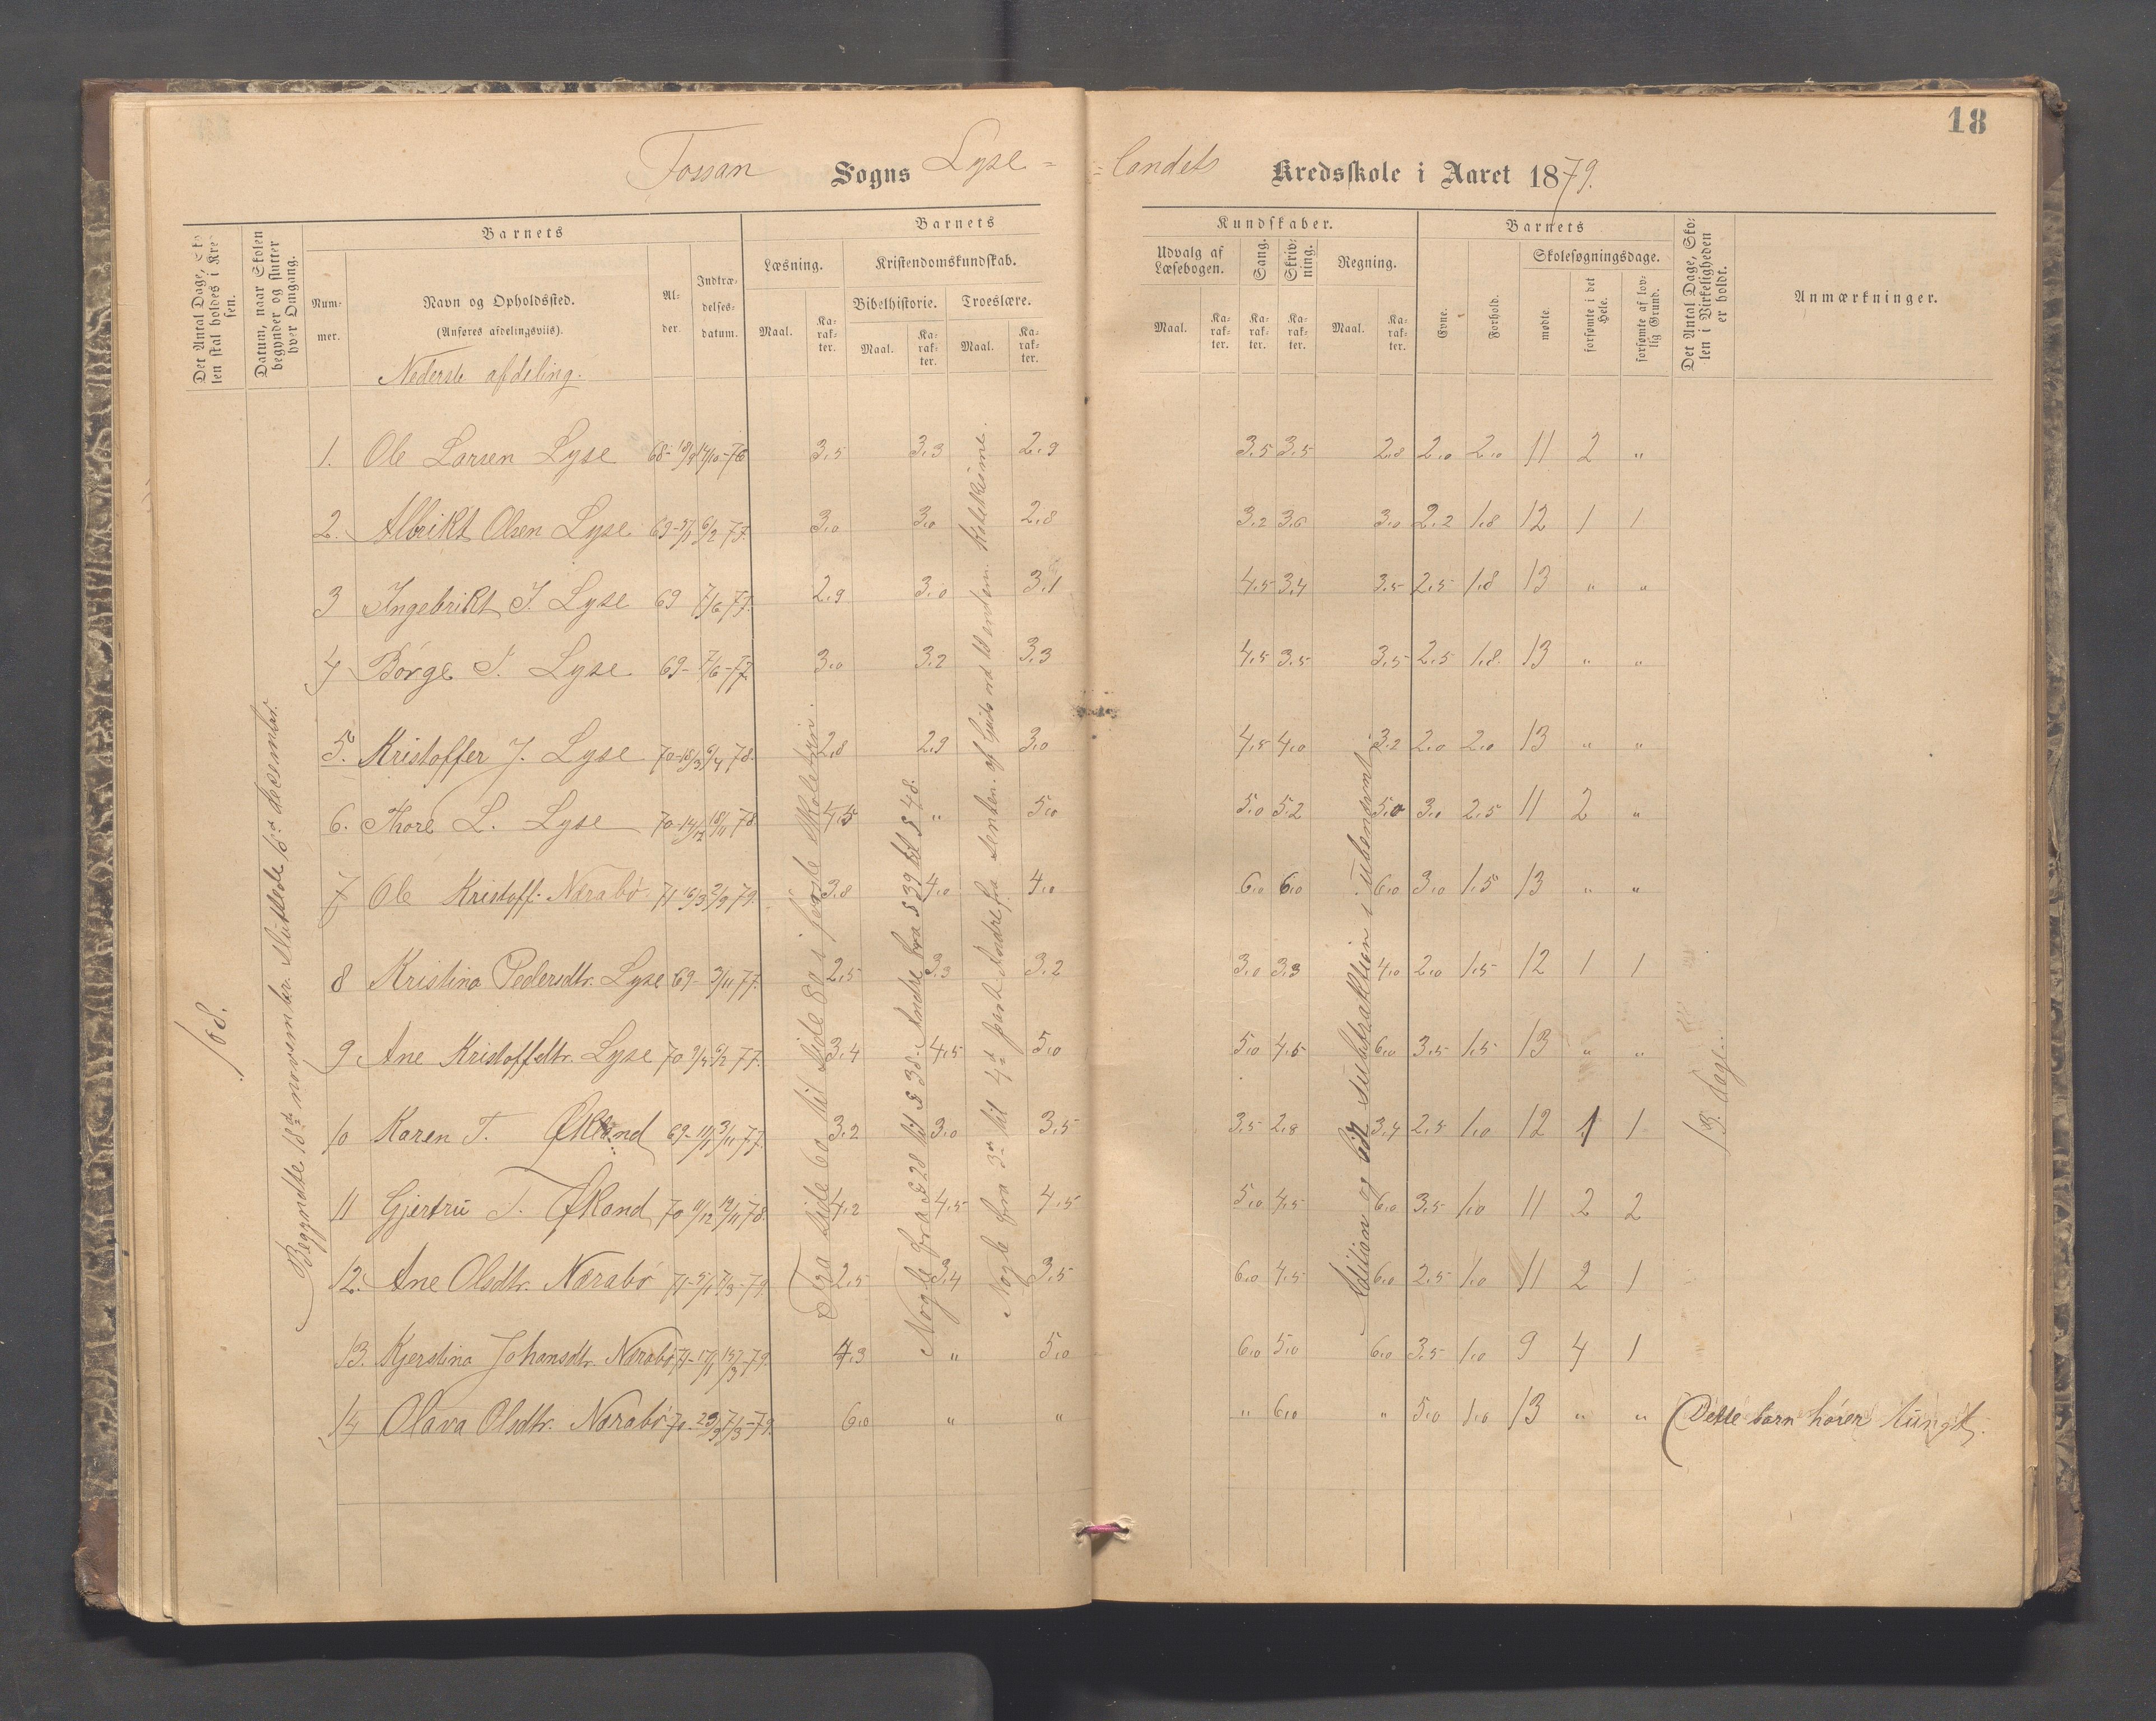 18
Fossan Sogns Lyse = = landets Kredsskole i Aaret 1879.
Det Antal Dage, Skolen skal holdes i Kredsen.
Datum, naar Skolen begynder og slutter hver Omgang.
Barnets
Nummer.
Navn og Opholdssted.
(Anføres afdelingsviis).
Alder.
Indtrædelsesdatum.
Barnets Kundskaber.
Læsning.
Maal. Karakter.
Kristendomskundskab.
Bibelhistorie. Troeslære.
Maal. Karakter. Maal. Karakter.
Udvalg af Læsebogen.
Maal. Karakter.
Sang. Karakter.
Skrivning. Karakter.
Regning.
Maal. Karakter.
Barnets
Evne. Forhold.
Skolesøgningsdage.
mødte. forsømte i det Hele. forsømte af lovlig Grund.
Det Antal Dage, Skolen i Virkeligheden er holdt.
Anmærkninger.
Nederste afdeling.
1. Ole Larsen Lyse 68-18/9 14/10-76 3,5 3,3 2,9 3,5 3,5 2,8 2,0 2,0 11 2 "
2. Albrikt Olsen Lyse 69-5/1 6/2-77. 3,0 3,0 2,8 3,2 3,6 3,0 2,2 1,8 12 1 1
3 Ingebrikt I. Lyse 69 7/6 77. 2,9 3,0 3,1 4,5 3,4 3,5 2,5 1,8 13 " "
4 Børge I. Lyse 69- 7/6-77 3,0 3,2 3,3 4,5 3,5 3,5 2,5 1,8. 13 " "
5. Kristoffer J. Lyse 70-18/3 6/4 78. 2,8 2,9 3,0 4,5 4,0 3,2 2,0 2,0 13 " "
6. Thore L. Lyse 70-14/12 18/11 78 4,5 " 5,0 5,0 5,2 5,0 3,0 2,5 11 2 "
7 Ole Kristoff. Nærabø. 71 16/3 2/9 79. 3,8 4,0 4,0 6,0 6,0 6,0 3,0 1,5 13 " "
8 Kristina Pedersdtr. Lyse 69- 3/11 77. 2,5 3,3 3,2 3,0 3,3 4,0 2,0 1,5 12 1 1
9 Ane Kristoffdtr. Lyse 70 9/4 6/2 77. 3,4 4,5 5,0 5,0 4,5 6,0 3,5 1,5 13 " "
10 Karen T. Økland 69-11/1 3/11 77. 3,2 3,0 3,5 3,5 2,8 3,4 2,5 1,0 12 1 1
11 Gjertru T. Økland 70 11/12 19/11 78. 4,2 4,5 4,5 5,0 4,5 6,0 3,5 1,0 11 2 2
12. Ane Olsdtr. Nærabø 71-5/1 7/3-79. 2,5 3,4 3,5 6,0 4,5 6,0 2,5 1,0 11 2 1
13. Kjerstina Johansdtr. Nærabø 71-17/1 15/3-79. 4,3 " 5,0 6,0 5,0 6,0 3,5 1,0 9 4 1
14 Olava Olsdtr. Nærabø 70. 23/9 7/3-79. 6,0 " " " 6,0 " 5,0 1,0 13 " " Dette barn hører tungt.
108.
Begyndte 18de november. Sluttede 16de desember.
Fra side 60 til side 80 i første skoletrin.
Nogle fra § 28 til § 38. Andre fra § 39 til § 48.
Nogle fra 3de til 4de part. Andre fra senten. af Guds ord til enden. Katekisme.
Adition og lidt subtraktion i ubenævnt.
13 dage.